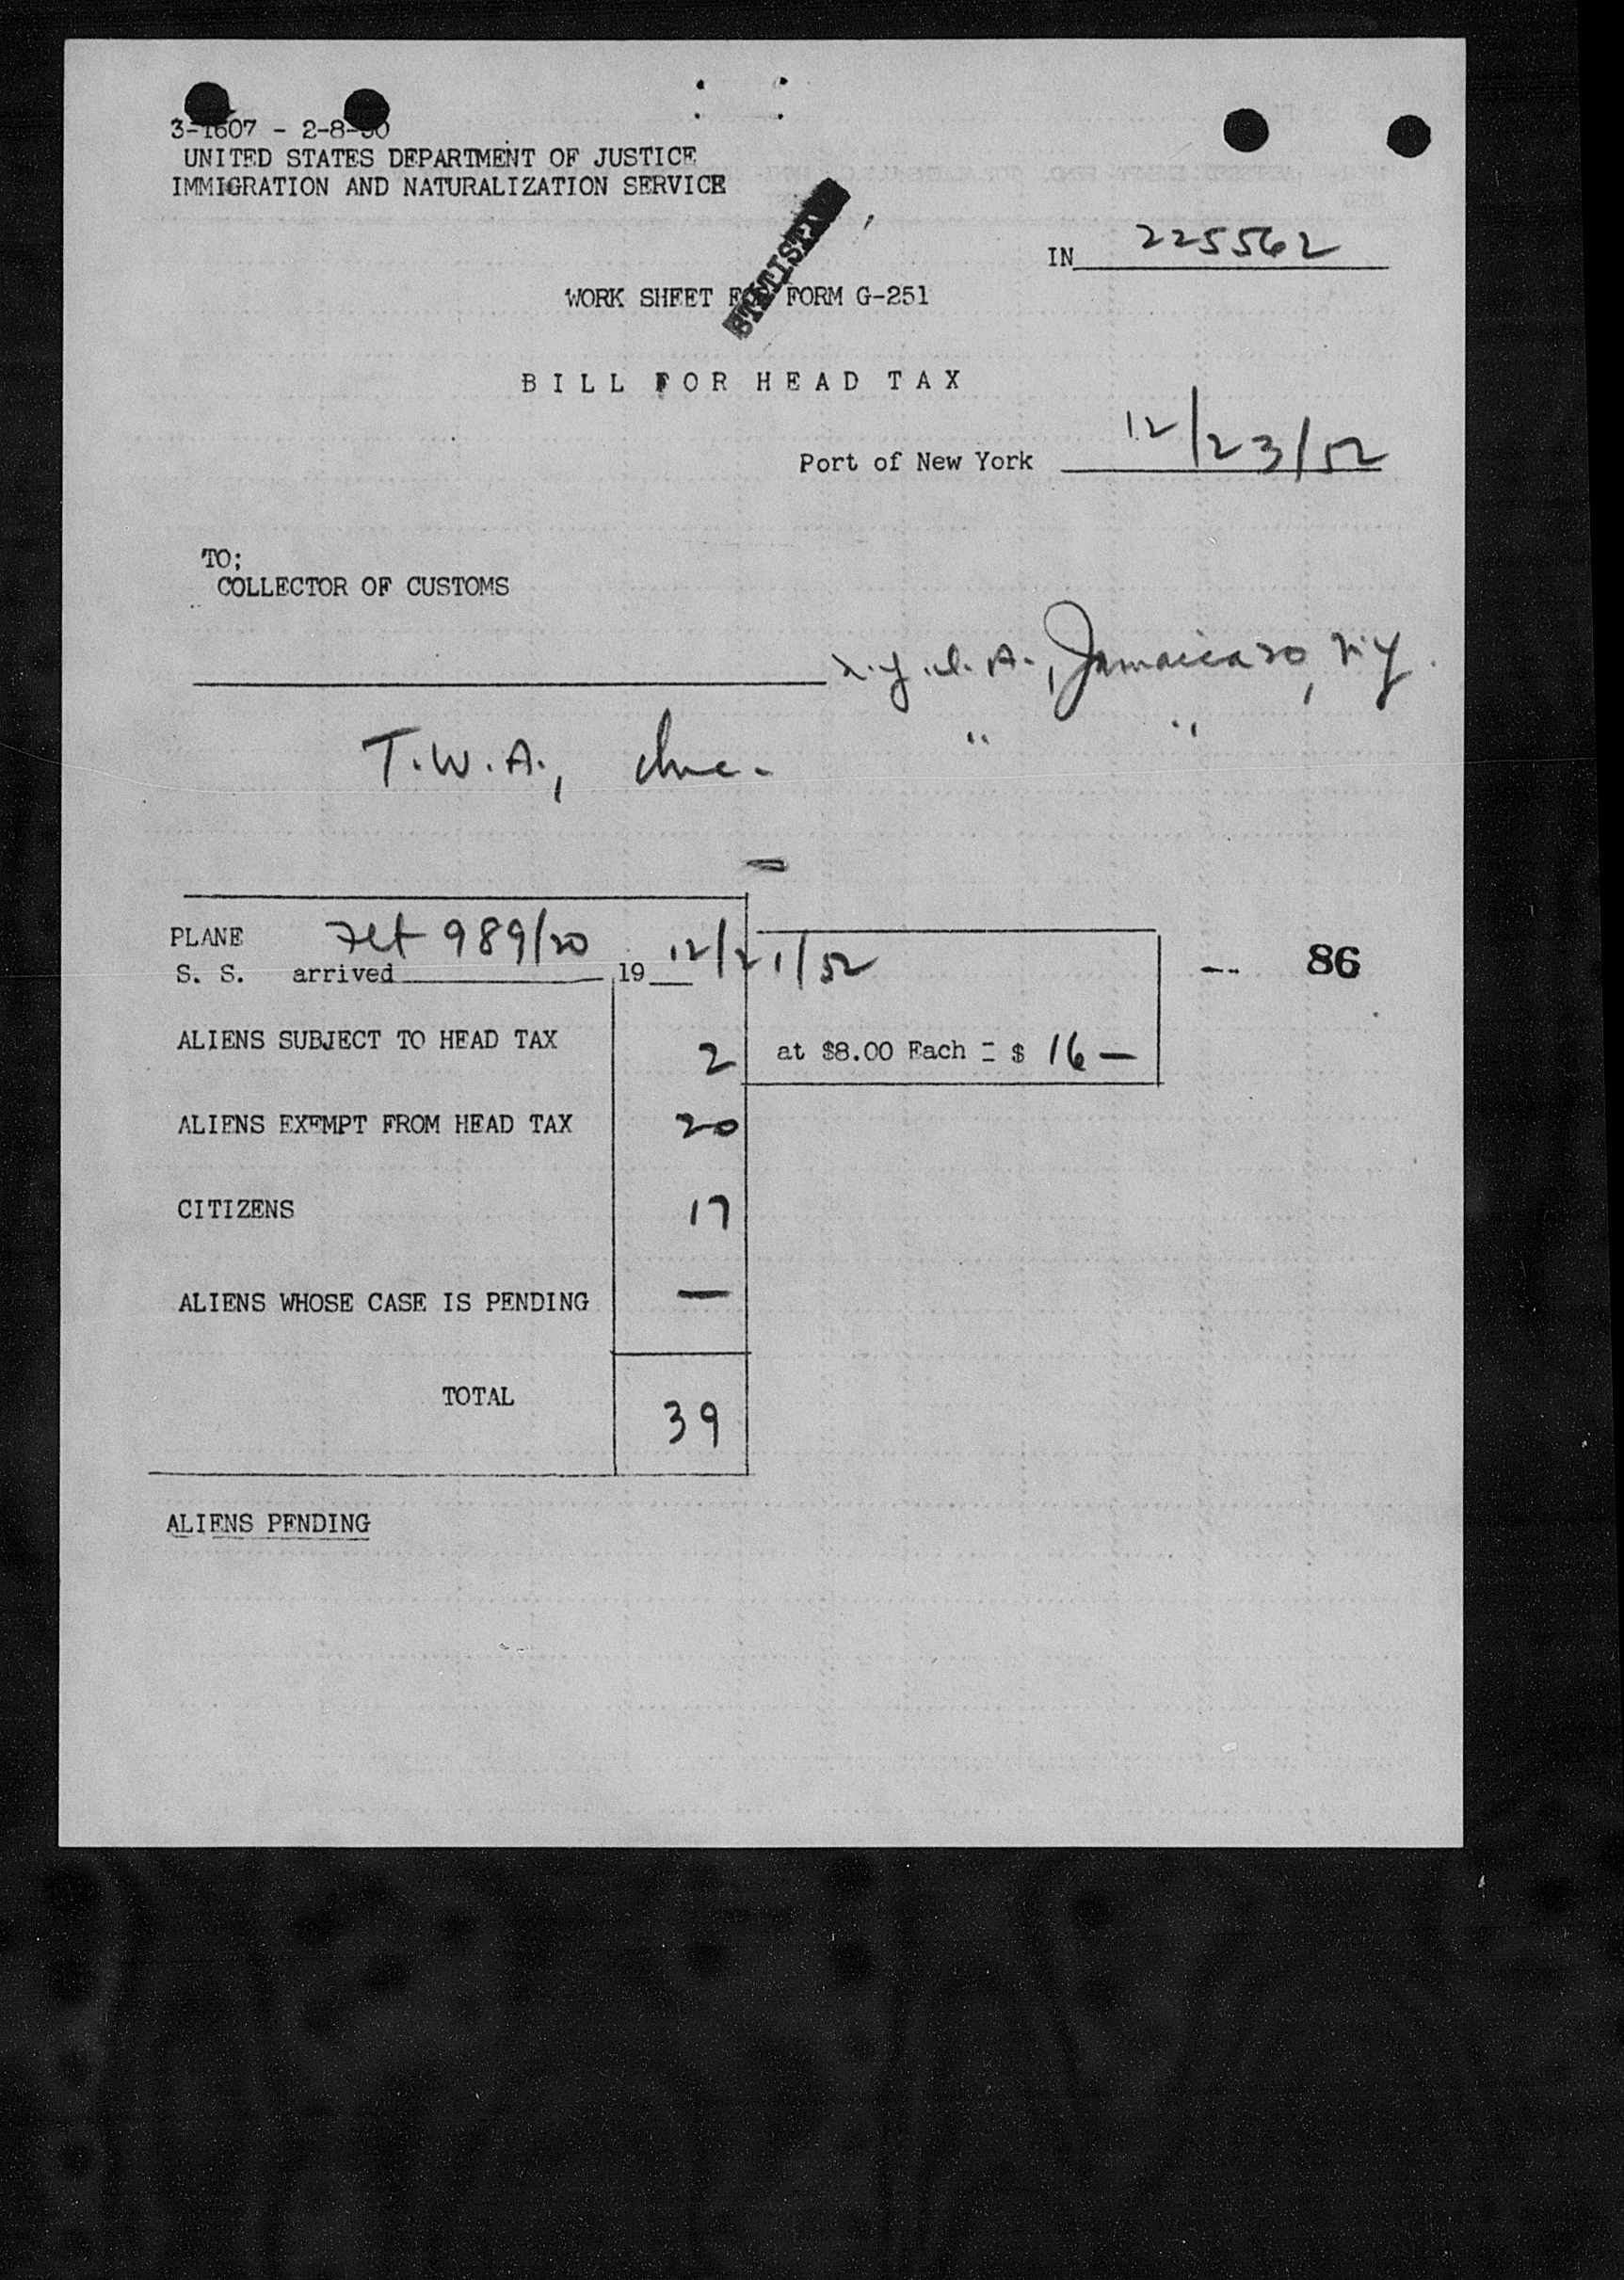 3-1607 - 2-8-50
UNITED STATES DEPARTMENT OF JUSTICE
IMMIGRATION AND NATURALIZATION SERVICE
IN 225562
WORK SHEET FOR FORM G-251
BILL FOR HEAD TAX
Port of New York 12/23/52
TO;
COLLECTOR OF CUSTOMS
N.Y.I.A., Jamaica 30, N.Y.
T.W.A., Inc. " "
PLANE Flt 989/20
S. S. arrived 19 12/21/52
-- 86
ALIENS SUBJECT TO HEAD TAX 2 at $8.00 Each = $ 16 —
ALIENS EXEMPT FROM HEAD TAX 20
CITIZENS 17
ALIENS WHOSE CASE IS PENDING —
TOTAL 39
ALIENS PENDING